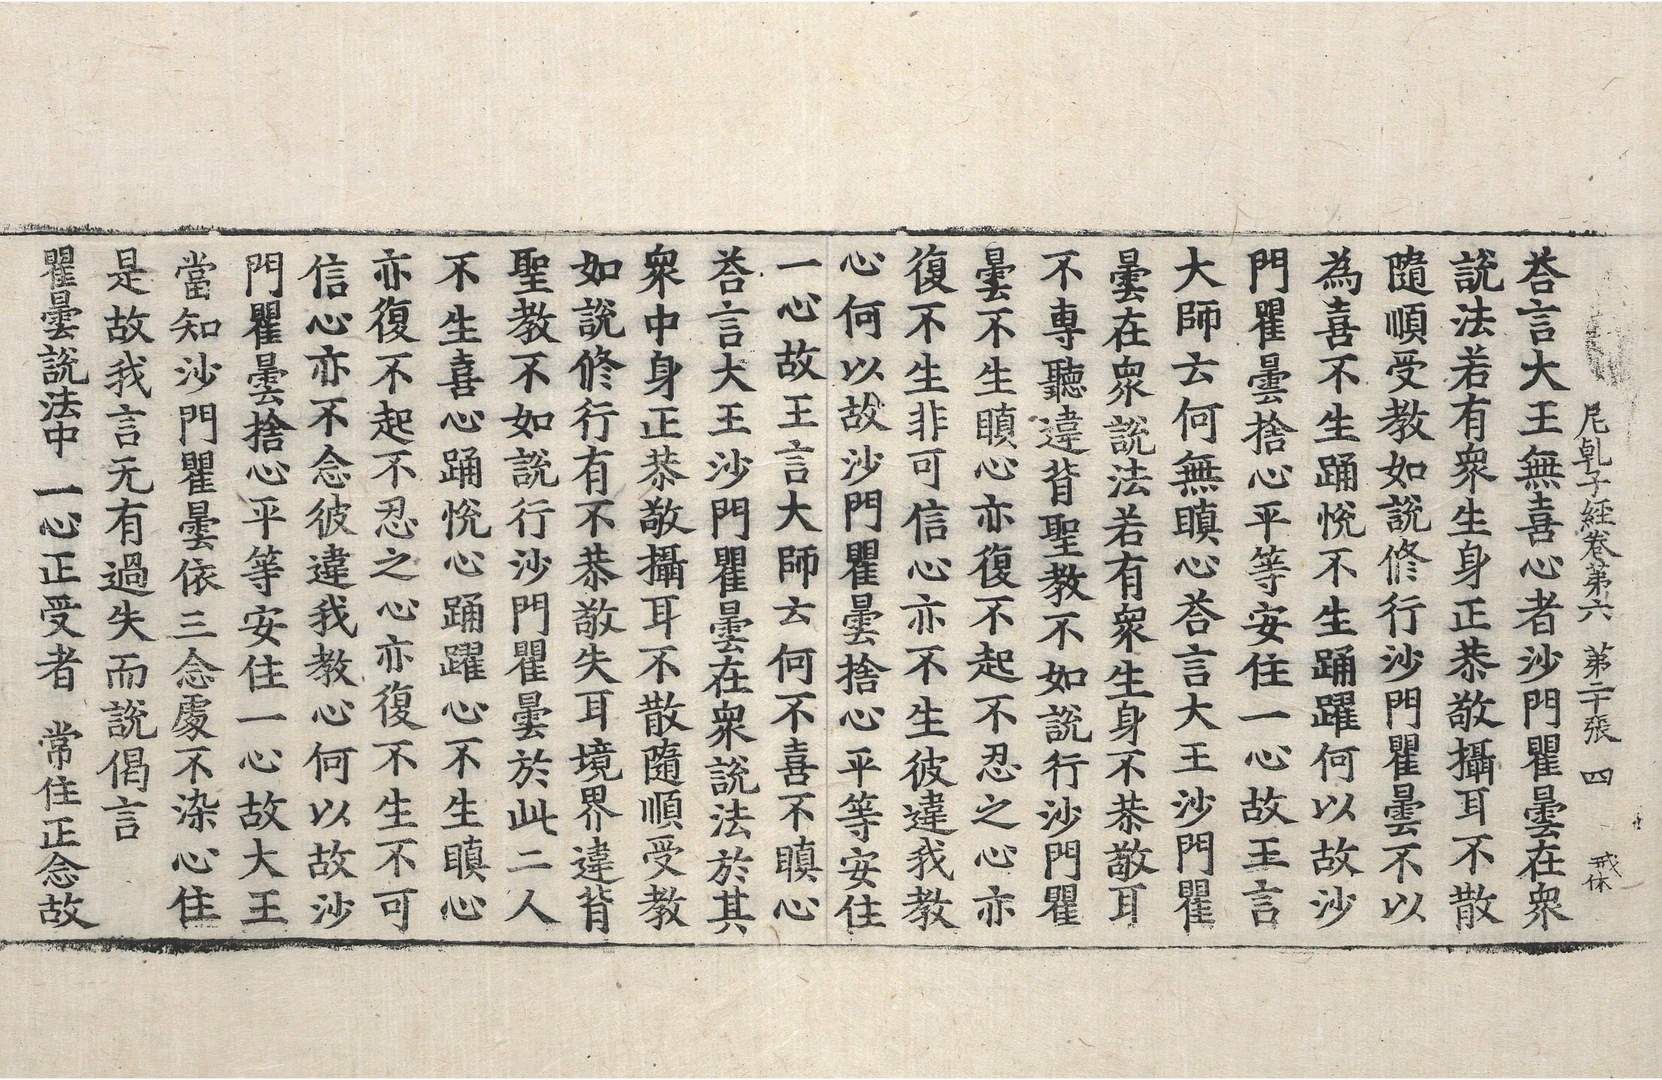 尼乹子經卷第六 第二十張 四
戒休
荅言大王無喜心者沙門瞿曇在衆
說法若有衆生身正恭敬攝耳不散
隨順受教如說修行沙門瞿曇不以
為喜不生踊悅不生踊躍何以故沙
門瞿曇捨心平等安住一心故王言
大師云何無瞋心荅言大王沙門瞿
曇在衆說法若有衆生身不恭敬耳
不專聽違背聖教不如說行沙門瞿
曇不生瞋心亦復不起不忍之心亦
復不生非可信心亦不生彼違我教
心何以故沙門瞿曇捨心平等安住
一心故王言大師云何不喜不瞋心
荅言大王沙門瞿曇在衆說法於其
衆中身正恭敬攝耳不散隨順受教
如說修行有不恭敬失耳境界違背
聖教不如說行沙門瞿曇於此二人
不生喜心踊悅心踊躍心不生瞋心
亦復不起不忍之心亦復不生不可
信心亦不念彼違我教心何以故沙
門瞿曇捨心平等安住一心故大王
當知沙門瞿曇依三念處不染心住
是故我言无有過失而說偈言
瞿曇說法中 一心正受者 常住正念故